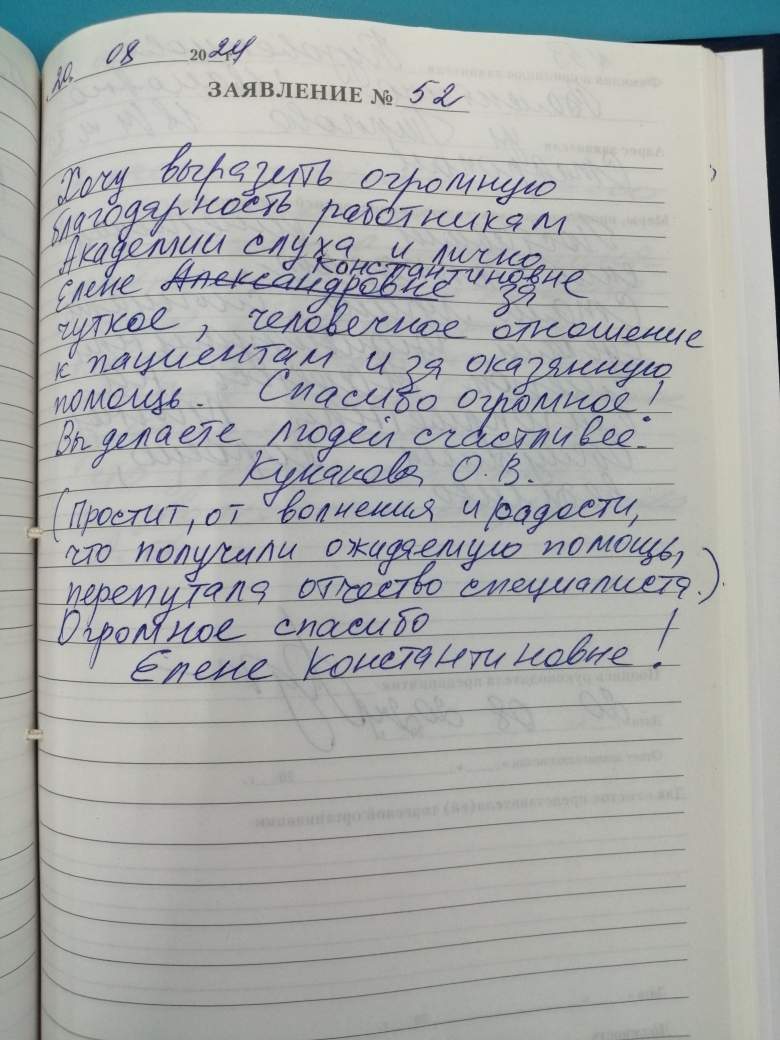 20. 08 2024 г.
ЗАЯВЛЕНИЕ № 52
Хочу выразить огромную
благодарность работникам
Академии слуха и лично
Константиновне
Елене Александровне за
чуткое, человечное отношение
к пациентам и за оказанную
помощь. Спасибо огромное!
Вы делаете людей счастливее.
Кунакова О.В.
(Простит, от волнения и радости,
что получили ожидаемую помощь,
перепутала отчество специалиста.)
Огромное спасибо
Елене Константиновне!